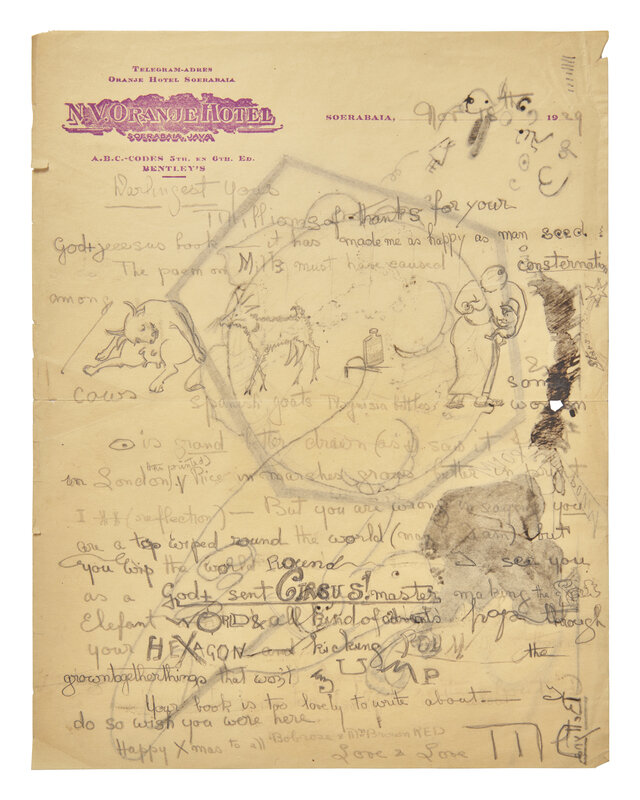 TELEGRAM-ADRES
ORANJE HOTEL SOERABAIA
N.V. ORANJE HOTEL
SOERABAIA, JAVA
A.B.C.-CODES 5TH. EN 6TH. ED.
BENTLEY'S
SOERABAIA, Nov 1929
Darlingest
Millions of thanks for your
God + jeeesus book — it has made me as happy as man seed.
The poem on Milk must have caused consternation
among
cows Spanish goats bottles some woman
is grand better drawn (as I saw it
in London) & Nice in marches grows better in print
I (reflection) — But you are wrong you
are a top wiped round the world (man) but
you wip the world Round I see you
as a God + sent CIRSUS! master making the
Elefant WORLD & all kind of hops through
your HEXAGON and kicking the
growntogetherthings that won't JUMP
Your book is too lovely to write about —
do so wish you were here.
Happy Xmas to all
Love & Love